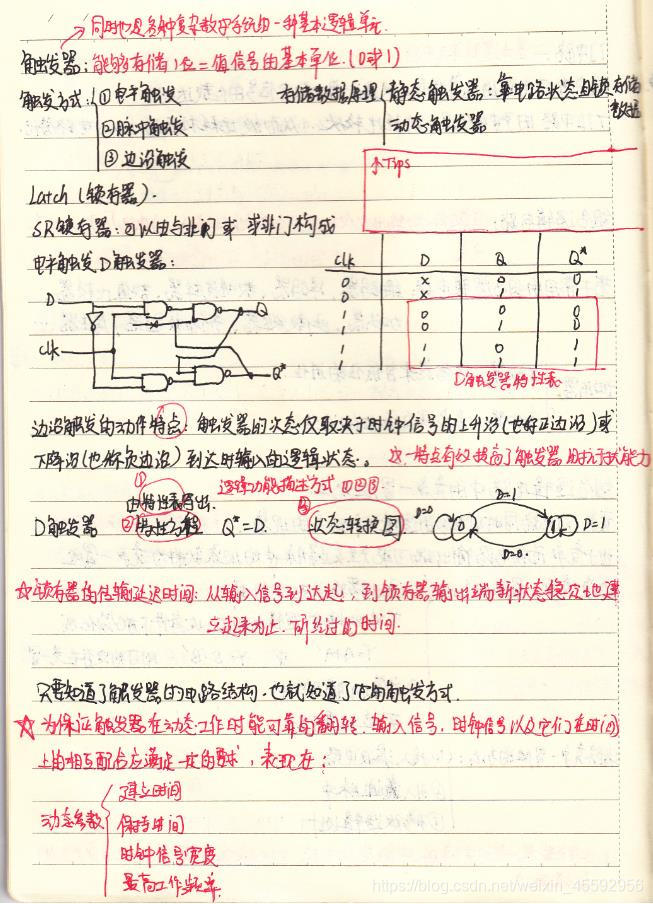 同时也是各种复杂数字系统的一种基本逻辑单元.
触发器：能够存储1位二值信号的基本单位.(0或1)
触发方式：①电平触发 存储数据原理 静态触发器：靠电路状态自锁存储数据
②脉冲触发 动态触发器
③边沿触发
↑Tips
Latch (锁存器).
SR锁存器：可以由与非门或 或非门构成
电平触发D触发器：
clk D Q Q*
0 x 0 0
0 x 1 1
1 0 0 0
1 0 1 0
1 1 0 1
1 1 1 1
D触发器特性表
D
clk
Q
Q*
边沿触发的动作特点：触发器的次态仅取决于时钟信号的上升沿(也称正边沿)或
下降沿(也称负边沿)到达时输入的逻辑状态。 这一特点有效提高了触发器的抗干扰能力
逻辑功能描述方式
① 由特性表得出.
D触发器 ②特性方程 Q*=D. 状态转换图
D=0 0 D=1 1 D=1
D=0
☆锁存器的传输延迟时间：从输入信号到达起，到锁存器输出端新状态稳定地建
立起来为止.所经过的时间.
只要知道了触发器的电路结构.也就知道了它的触发方式.
☆为保证触发器在动态工作时能可靠的翻转.输入信号.时钟信号以及它们在时间
上的相互配合应满足一定的要求，表现在：
动态参数
建立时间
保持时间
时钟信号宽度
最高工作频率
https://blog.csdn.net/weixin_45592956